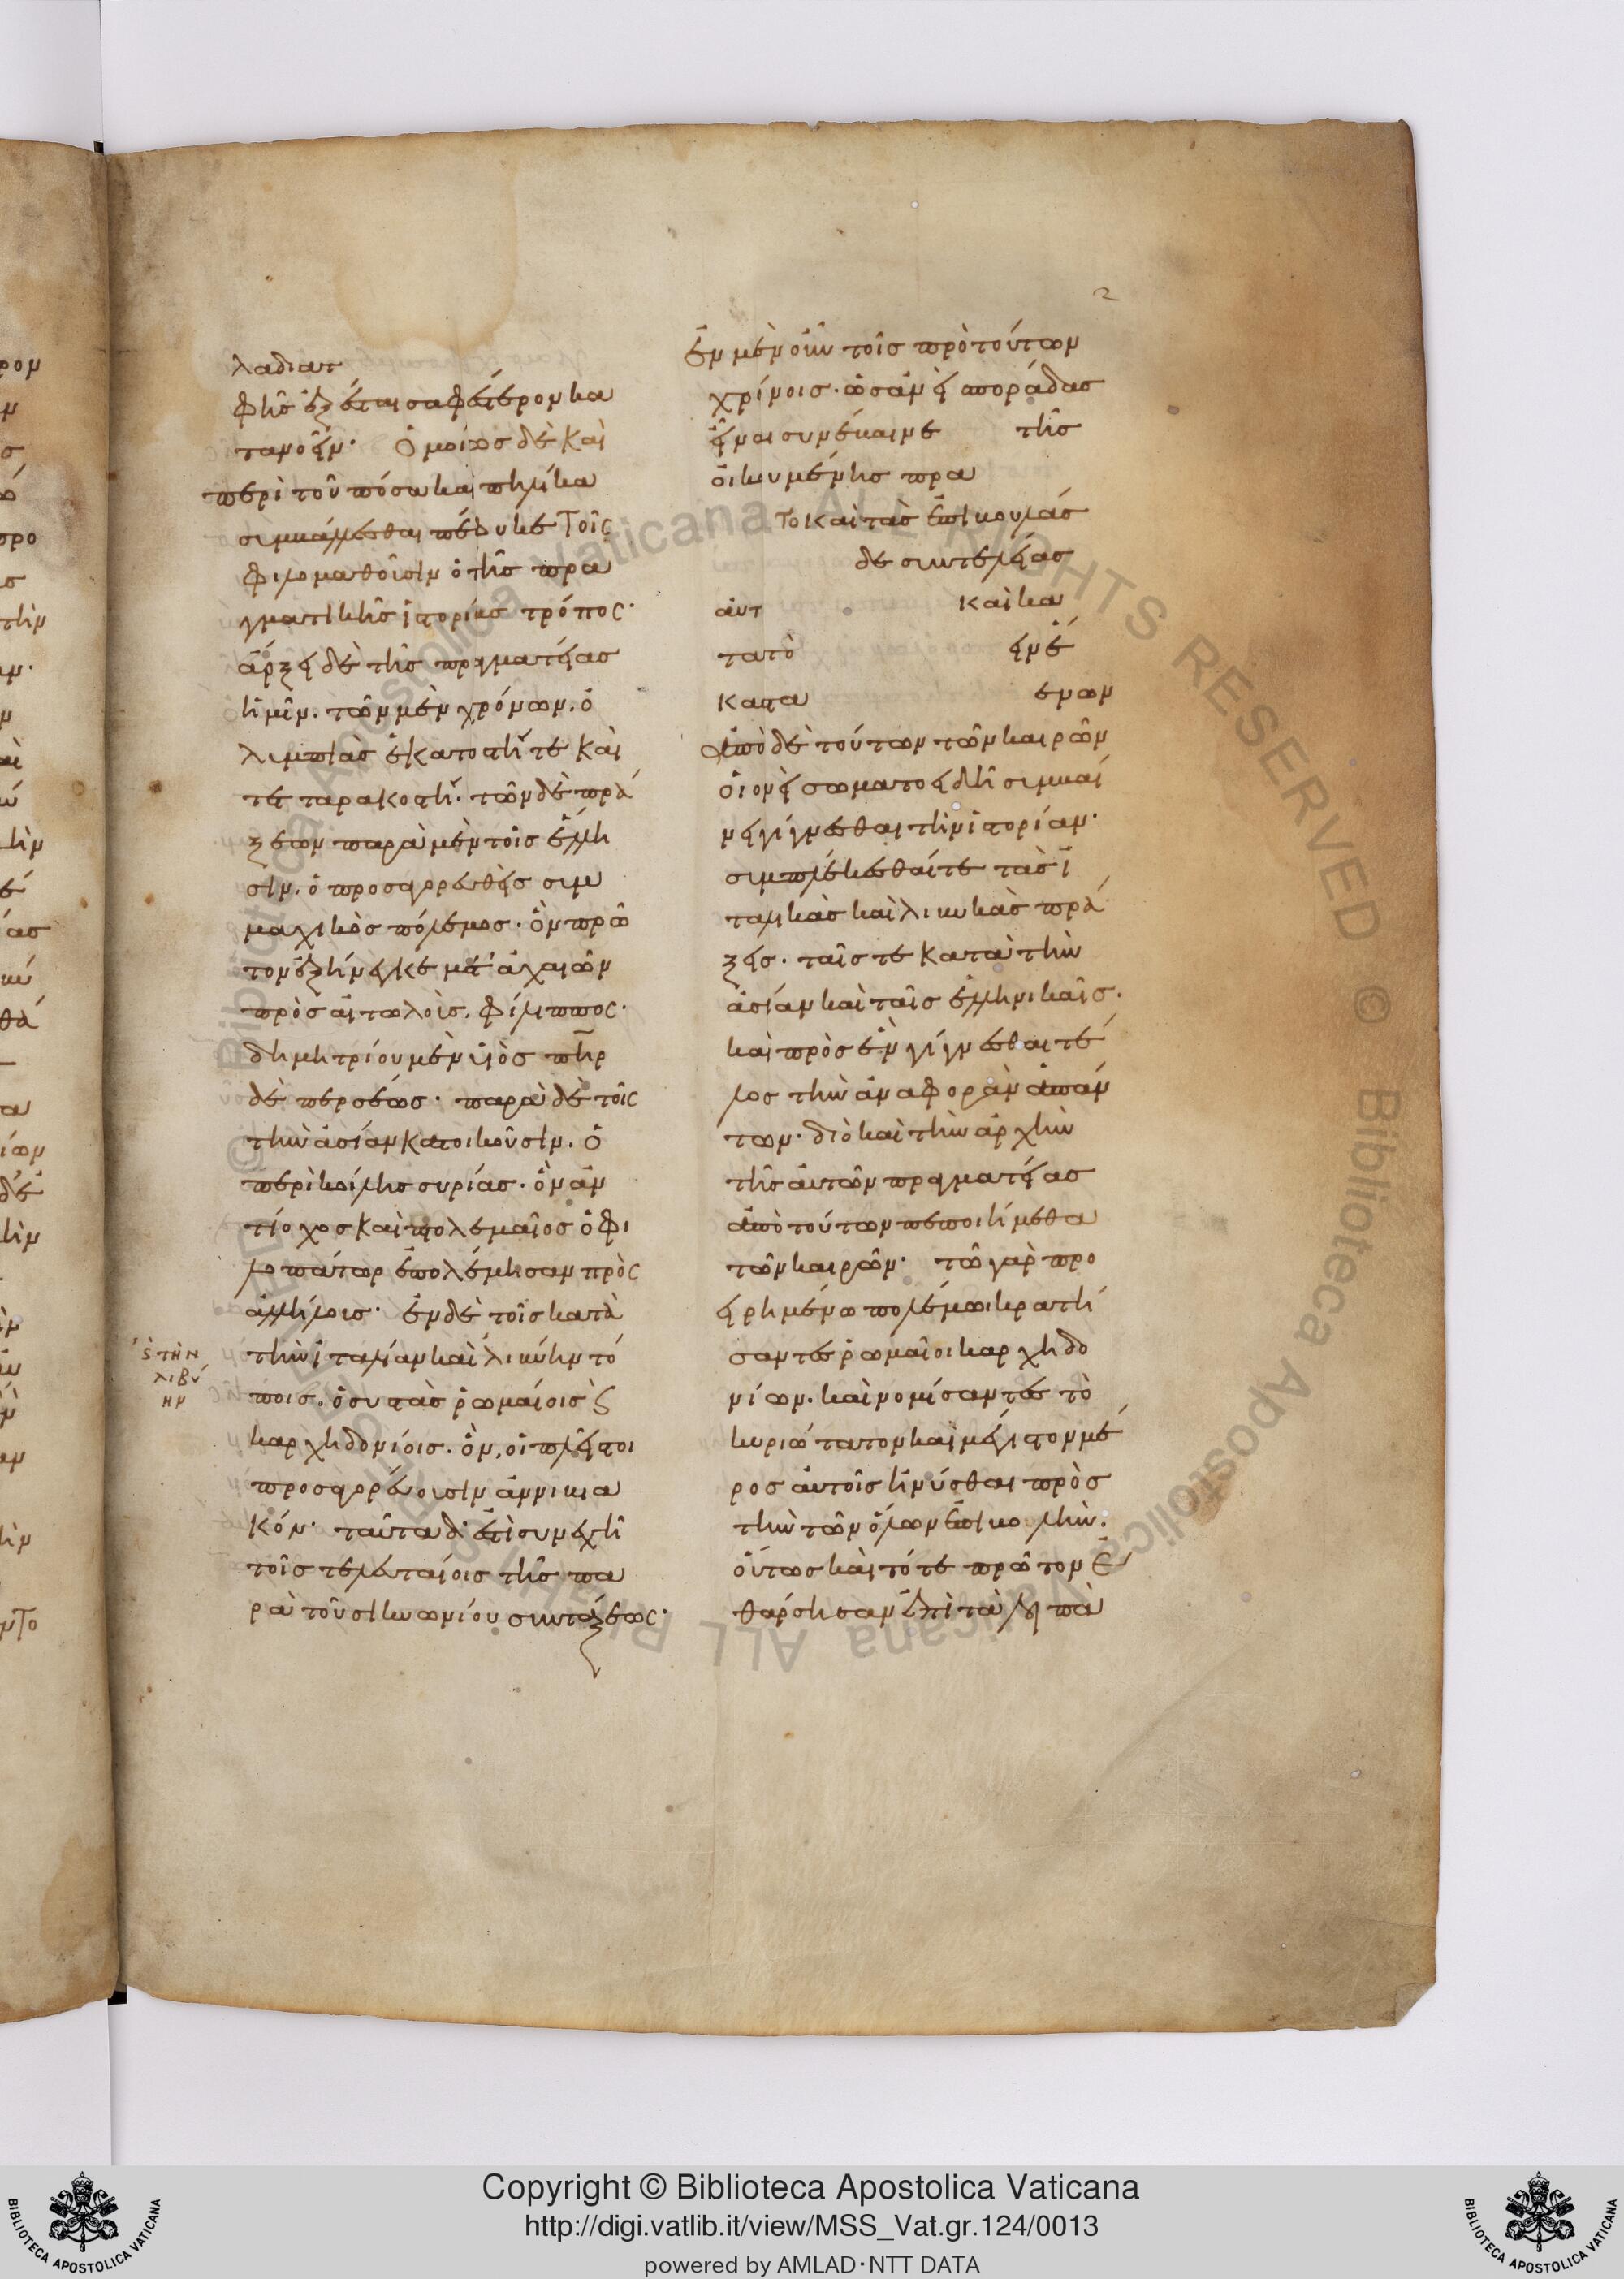 λαδιατ
φῆς ἐξέσται σαφέστερον κα
τανοεῖν· Ὁμοίως δὲ καὶ
περὶ τοῦ πόσα καὶ πηλίκα
συμβάλλεσθαι πέφυκε τοῖς
φιλομαθοῦσιν ὁ τῆς πρα
γματικῆς ἱστορίας τρόπος·
ἄρξει δὲ τῆς πραγματείας
ἡμῖν. τῶν μὲν χρόνων. ὀ
λυμπιὰς ἑκατοστή τε καὶ
τετταρακοστή. τῶν δὲ πρά
ξεων παρὰ μὲν τοῖς ἕλλη
σιν. ὁ προσαγορευθεὶς συμ
μαχικὸς πόλεμος. ὃν πρῶ
τον ἐξήνεγκε μετ' ἀχαιῶν
πρὸς αἰτωλοὺς. φίλιππος·
δημητρίου μὲν υἱὸς πατὴρ
δὲ περσέως· παρὰ δὲ τοῖς
τὴν ἀσίαν κατοικοῦσιν. ὁ
περὶ κοίλης συρίας. ὃν ἀν
τίοχος καὶ πτολεμαῖος ὁ φι
λοπάτωρ ἐπολέμησαν πρὸς
ἀλλήλους· ἐν δὲ τοῖς κατὰ
τὴν ἰταλίαν καὶ λιβύην τό
ποις. ὁ συστὰς ῥωμαίοις ϛ
καρχηδονίοις. ὃν, οἱ πλεῖστοι
προσαγορεύουσιν ἀννιβια
κόν· ταῦτα δ' ἐστὶ συνεχῆ
τοῖς τελευταίοις τῆς πα
ρὰ τοῦ σικυωνίου συντάξεως·
ϛ ΤῊΝ
ΛΙΒΎ
ΗΝ
2
ἐν μὲν οὖν τοῖς πρὸ τούτων
χρόνοις. ὡσὰν εἰ σποράδας
εἶναι συνέβαινε τῆς
οἰκουμένης πρα
το καὶ τὰς ἐπιβουλάς
δε συντελείας
αὐτ καὶ κα
τατὸ εινέ
κατα ενων
ἀπὸ δὲ τούτων τῶν καιρῶν
οἱονεὶ σωματοειδῆ συμβαί
νει γίγνεσθαι τὴν ἱστορίαν·
συμπλέκεσθαί τε τὰς ἰ
ταλικὰς καὶ λιβυκὰς πρά
ξεις. ταῖς τε κατὰ τὴν
ἀσίαν καὶ ταῖς ἑλληνικαῖς.
καὶ πρὸς ἓν γίγνεσθαι τέ
λος τὴν ἀναφορὰν ἁπάν
των· διὸ καὶ τὴν ἀρχὴν
τῆς αὐτῶν πραγματείας
ἀπὸ τούτων πεποιήμεθα
τῶν καιρῶν· τῷ γὰρ προ
ειρημένῳ πολέμῳ κρατή
σαντες ῥωμαῖοι καρχηδο
νίων. καὶ νομίσαντες τὸ
κυριώτατον καὶ μέγιστον μέ
ρος αὐτοῖς ἠνύσθαι πρὸς
τὴν τῶν ὅλων ἐπιβουλήν.
οὕτως καὶ τότε πρῶτον ἐ
θάρσησαν ἐπὶ τὰ λοιπὰ
Copyright © Biblioteca Apostolica Vaticana
http://digi.vatlib.it/view/MSS_Vat.gr.124/0013
powered by AMLAD·NTT DATA
BIBLIOTECA APOSTOLICA VATICANA
BIBLIOTECA APOSTOLICA VATICANA
© Biblioteca Apostolica Vaticana ALL RIGHTS RESERVED © Biblioteca Apostolica Vaticana ALL RIGHTS RESERVED